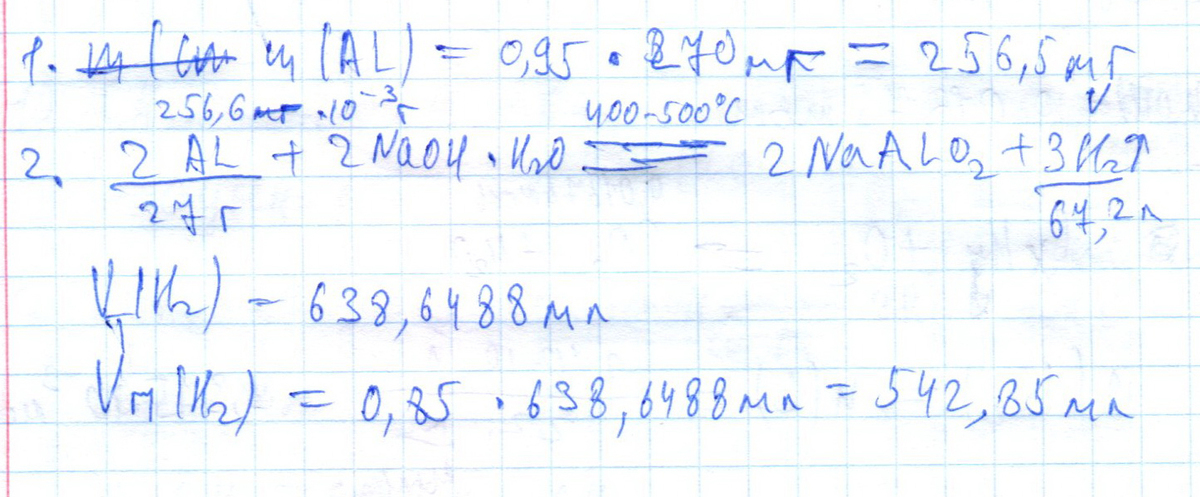 1. m (AL) = 0,95 · 270 мг = 256,5 мг
256,6 · 10⁻³ г 400-500°C V
2. 2 AL + 2 NaOH · H₂O = 2 NaALO₂ + 3H₂↑
27 г 67,2 л
V(H₂) = 638,6488 мл
Vп(H₂) = 0,85 · 638,6488 мл = 542,85 мл